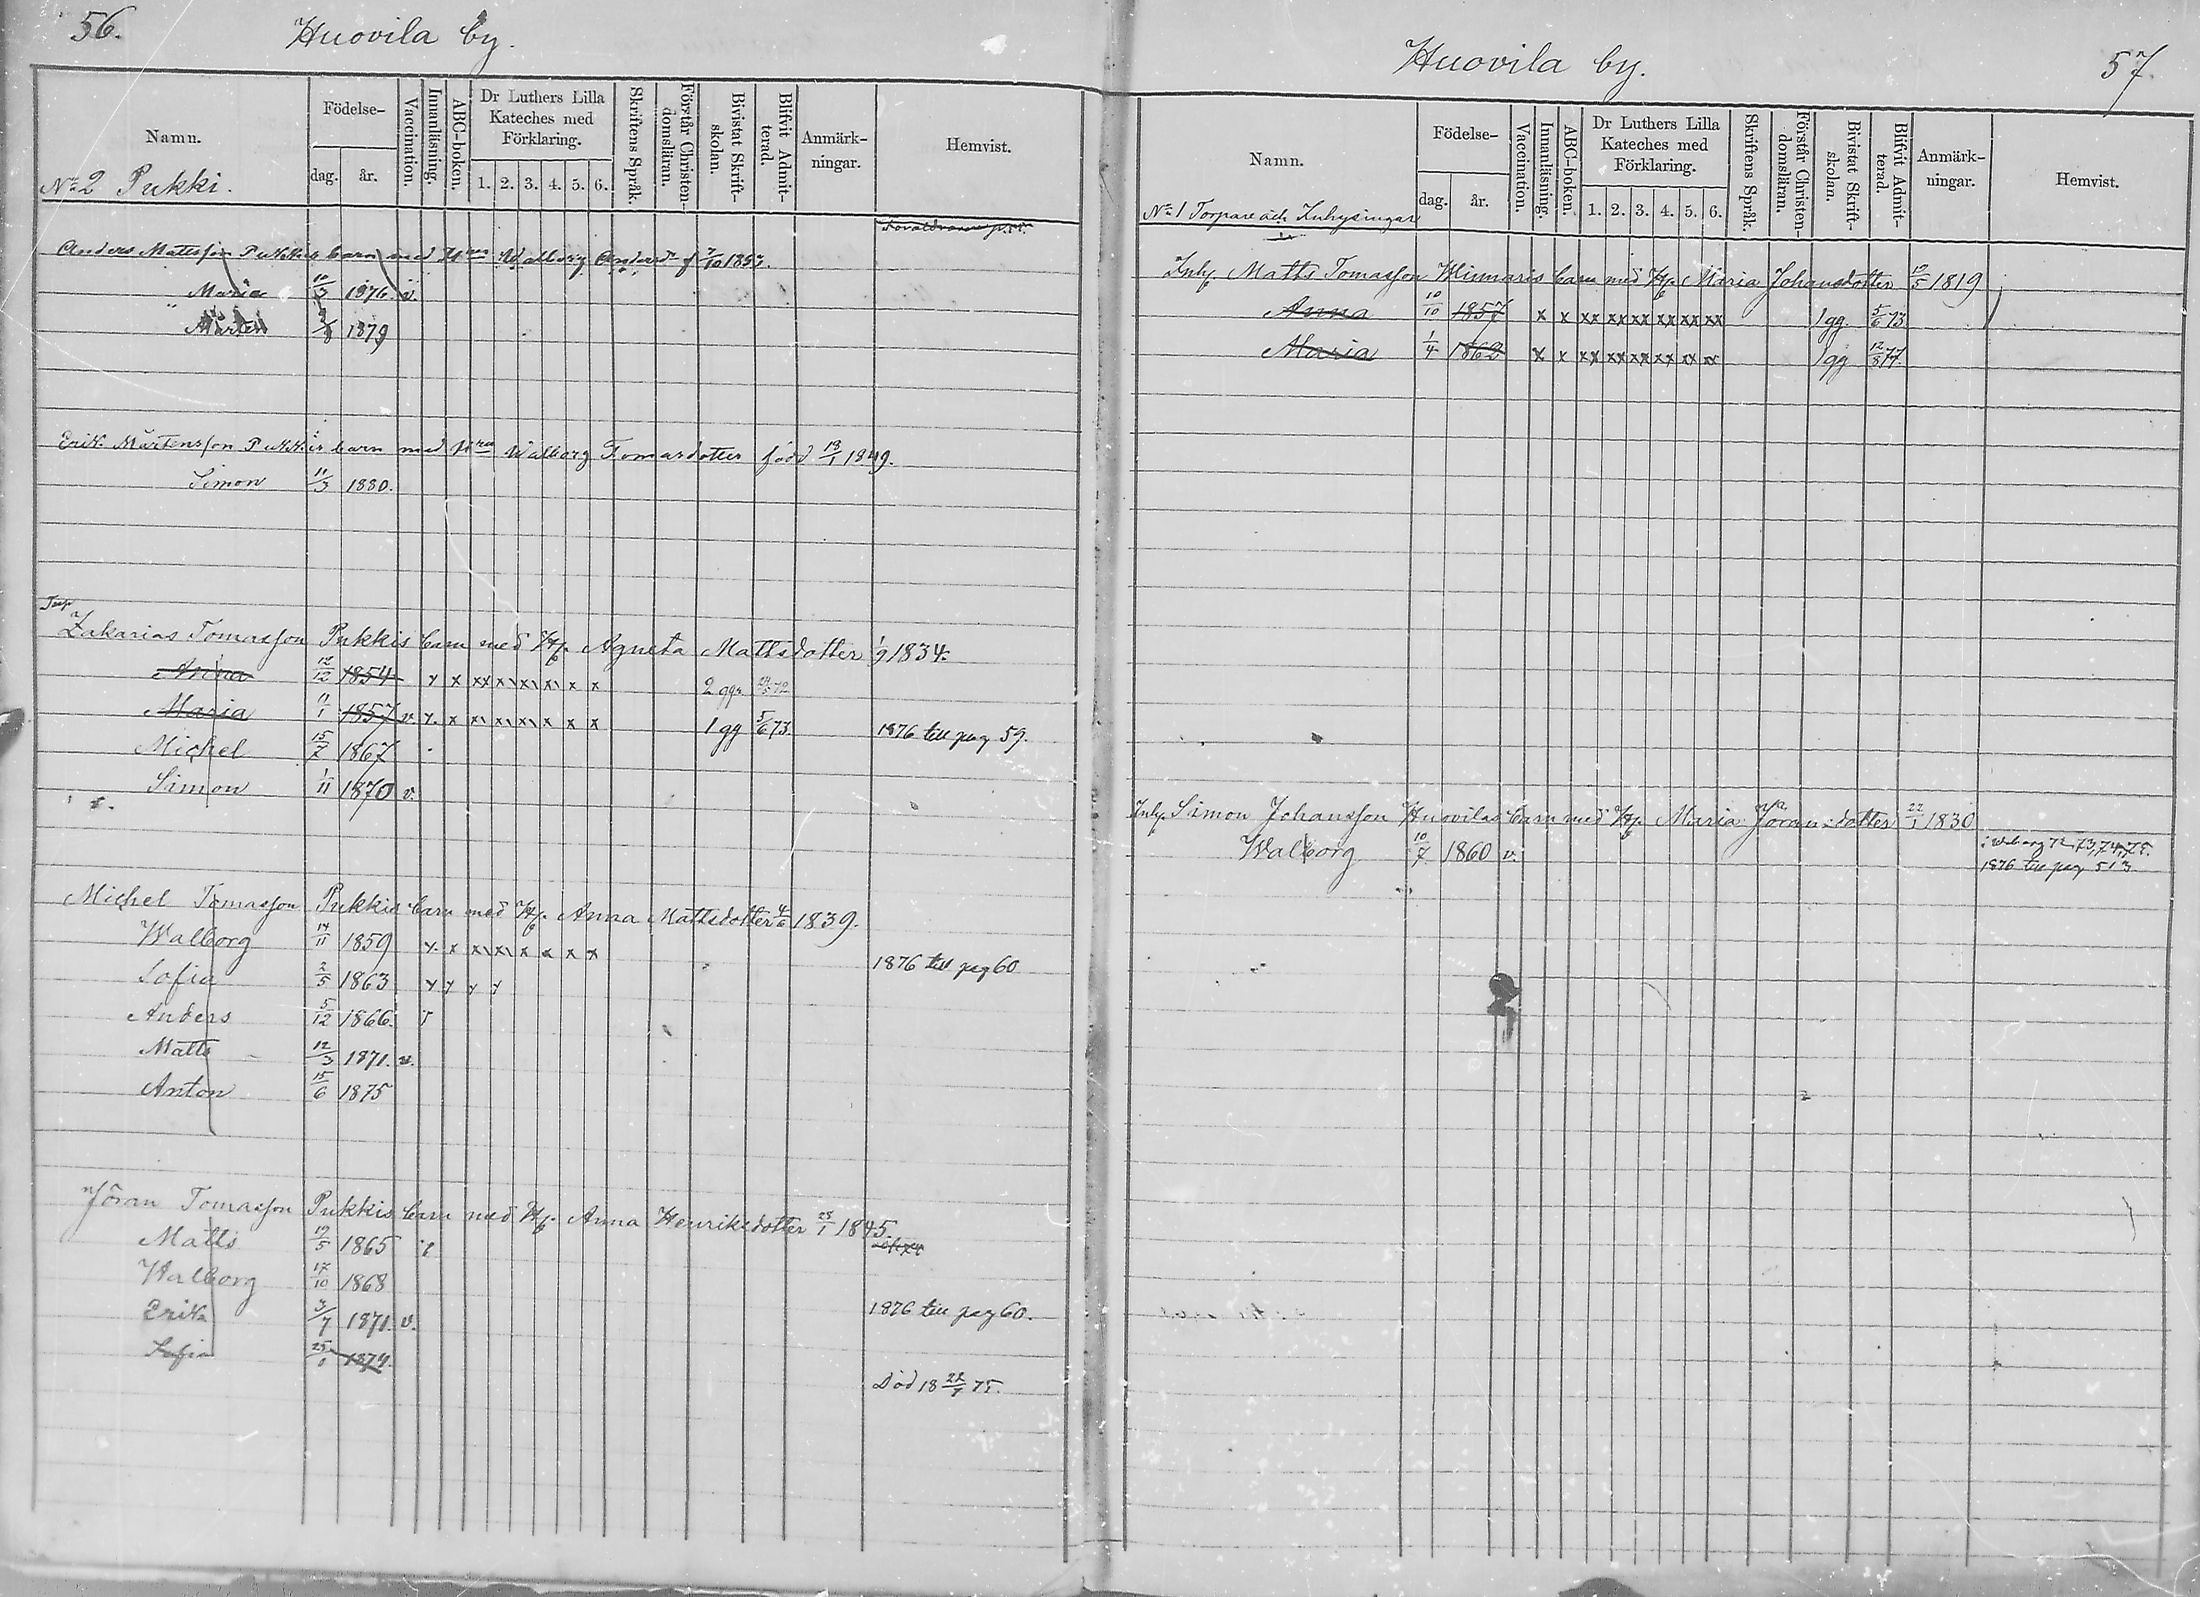 56.
Huovila by.
Namn.
Födelse-
dag.
år.
Vaccination.
Innanläsning.
ABC-boken.
Dr Luthers Lilla
Kateches med
Förklaring.
1. 2. 3. 4. 5. 6.
Skriftens Språk.
Förstår Christen-
domsläran.
Bivistat Skrift-
skolan.
Blifvit Admit-
terad.
Anmärk-
ningar.
Hemvist.
No 2 Pukki.
Anders Mattsson Pukkis barn med H:ru Walborg
Maria 1876 v.
Mårten 1879
Erik Mårtensson Pukkis barn med H:ru Walborg Tomasdotter född 13/1 1849.
Simon 11/3 1880.
Torp
Zakarias Tomasson Pukkis barn med Hu. Agneta Mattsdotter 1/9 1834.
Anna 12/12 1854 x x xx x x x x x 2 ggr
Maria 11/1 1857 v. x. x x x x x x x 1 gg 5/6 73. 1876 till pag 59.
Michel 15/7 1867
Simon 1/11 1870 v.
Michel Tomasson Pukkis barn med Hu. Anna Mattsdotter 4/6 1839.
Walborg 14/11 1859 x x x x x x x x
Sofia 2/5 1863 1876 till pag 60
Anders 5/12 1866.
Matts 12/3 1871. v.
Anton 15/6 1875
Jöran Tomasson Pukkis barn med Hu. Anna Henriksdotter 28/1 1845.
Matts 19/5 1865
Walborg 17/10 1868
Erik 3/7 1871. v. 1876 till pag 60.
Sofia 1874.
Död 18 22/7 75.
Huovila by.
57.
Namn.
Födelse-
dag.
år.
Vaccination.
Innanläsning.
ABC-boken.
Dr Luthers Lilla
Kateches med
Förklaring.
1. 2. 3. 4. 5. 6.
Skriftens Språk.
Förstår Christen-
domsläran.
Bivistat Skrift-
skolan.
Blifvit Admit-
terad.
Anmärk-
ningar.
Hemvist.
No 1 Torpare och Inhysingar
Inh. Matts Tomasson Winnaris barn med Hu. Maria Johansdotter 19/5 1819
Anna 10/10 1857 x x xx xx xx xx xx xx 1 gg. 5/6 73
Maria 1/4 1862 x x xx xx xx xx xx xx 1 gg 12/8 77.
Inh. Simon Johansson Huovilas barn med Hu. Maria Jöransdotter 22/1 1830
Walborg 10/7 1860 v. i Wiborg 72, 73, 74, 75.
1876 till pag 513